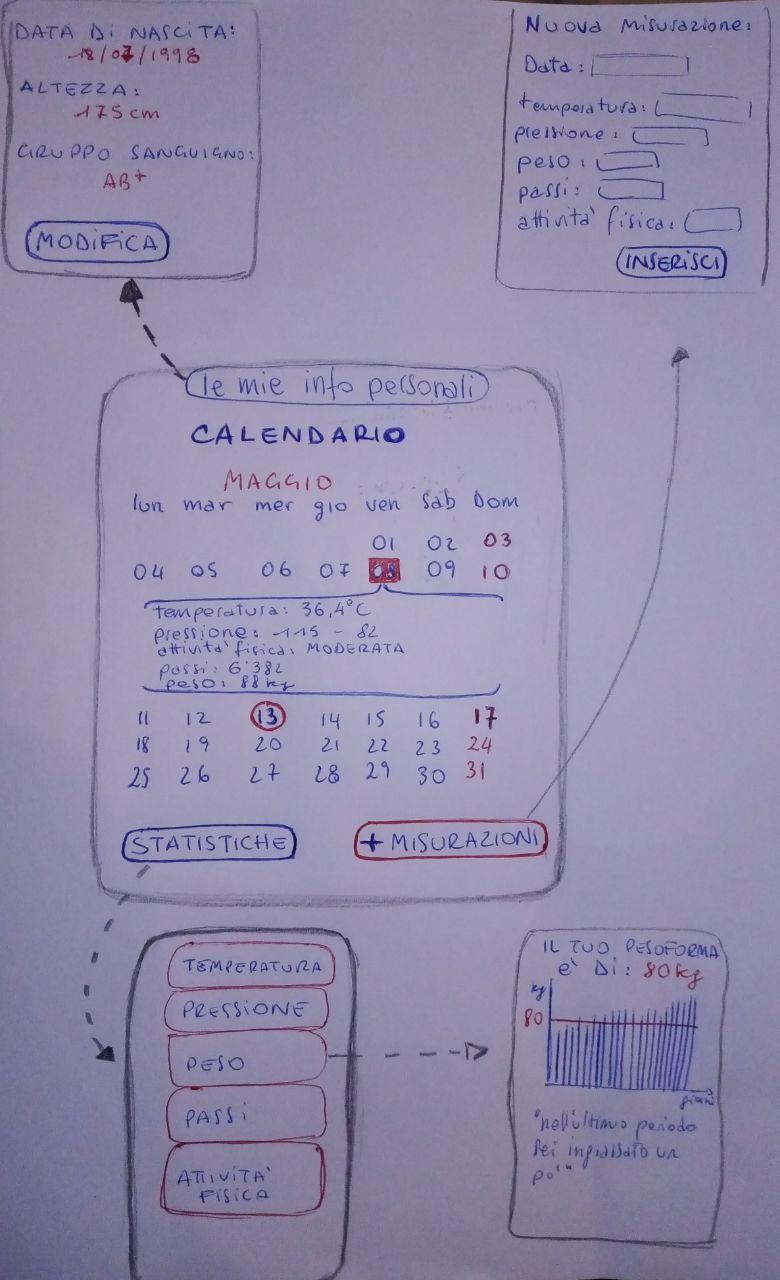 DATA DI NASCITA:
18/07/1998
ALTEZZA:
175 cm
GRUPPO SANGUIGNO:
AB+
MODIFICA
Nuova misurazione:
Data:
temperatura:
pressione:
peso:
passi:
attività fisica:
INSERISCI
le mie info personali
CALENDARIO
MAGGIO
lun mar mer gio ven sab Dom
01 02 03
04 05 06 07 08 09 10
temperatura: 36,4°C
pressione: 115 - 82
attività fisica: MODERATA
passi: 6'382
peso: 88 kg
11 12 13 14 15 16 17
18 19 20 21 22 23 24
25 26 27 28 29 30 31
STATISTICHE
+ MISURAZIONI
TEMPERATURA
PRESSIONE
PESO
PASSI
ATTIVITA'
FISICA
IL TUO PESOFORMA
E' DI: 80 kg
kg
80
giorni
"nell'ultimo periodo
sei ingrassato un
po'"